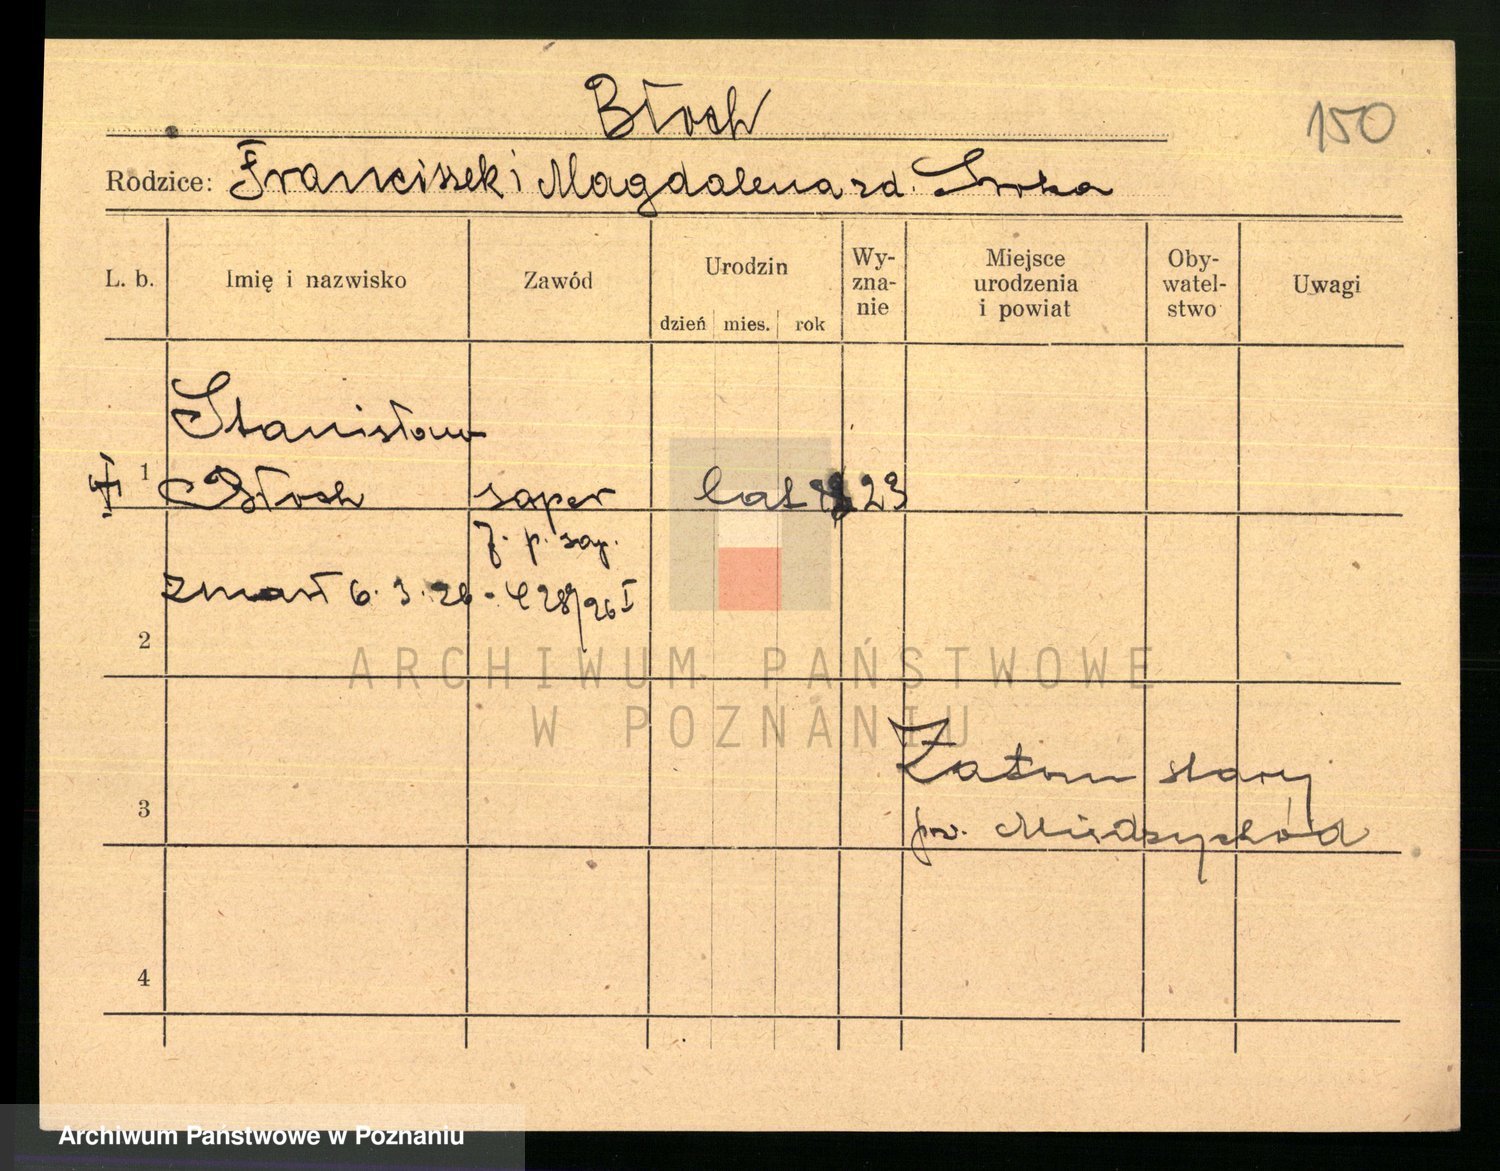 Błoch
150
Rodzice: Franciszek i Magdalena zd.
L. b. Imię i nazwisko Zawód Urodzin dzień mies. rok Wy-zna-nie Miejsce urodzenia i powiat Oby-watel-stwo Uwagi
Stanisław
1 Błoch saper lat 23
7. p. sap.
zmarł 6. 3. 26 -
2
ARCHIWUM PAŃSTWOWE
W POZNANIU
Zatom stary
3 pow. Międzychód
4
Archiwum Państwowe w Poznaniu